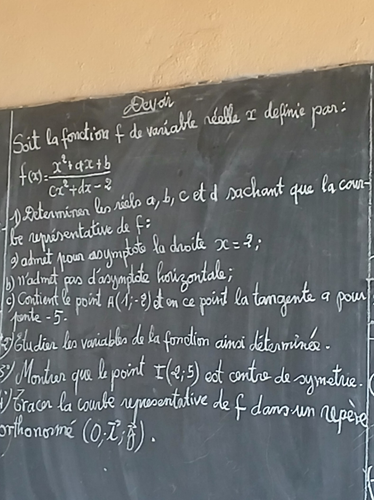 Devoir
Soit la fonction f de variable réelle x definie par:
f(x) = (x²+ax+b)/(cx²+dx-2)
1) Déterminer les réels a, b, c et d sachant que la cour-
be représentative de f:
a) admet pour asymptote la droite x = 2;
b) n'admet pas d'asymptote horizontale;
c) Contient le point A(1;-2) et en ce point la tangente a pour
pente -5.
2) Etudier les variables de la fonction ainsi déterminée.
3°) Montrer que le point I(-2;5) est centre de symetrie.
4°) Tracer la courbe representative de f dans un repère
orthonormé (O; i⃗; j⃗).